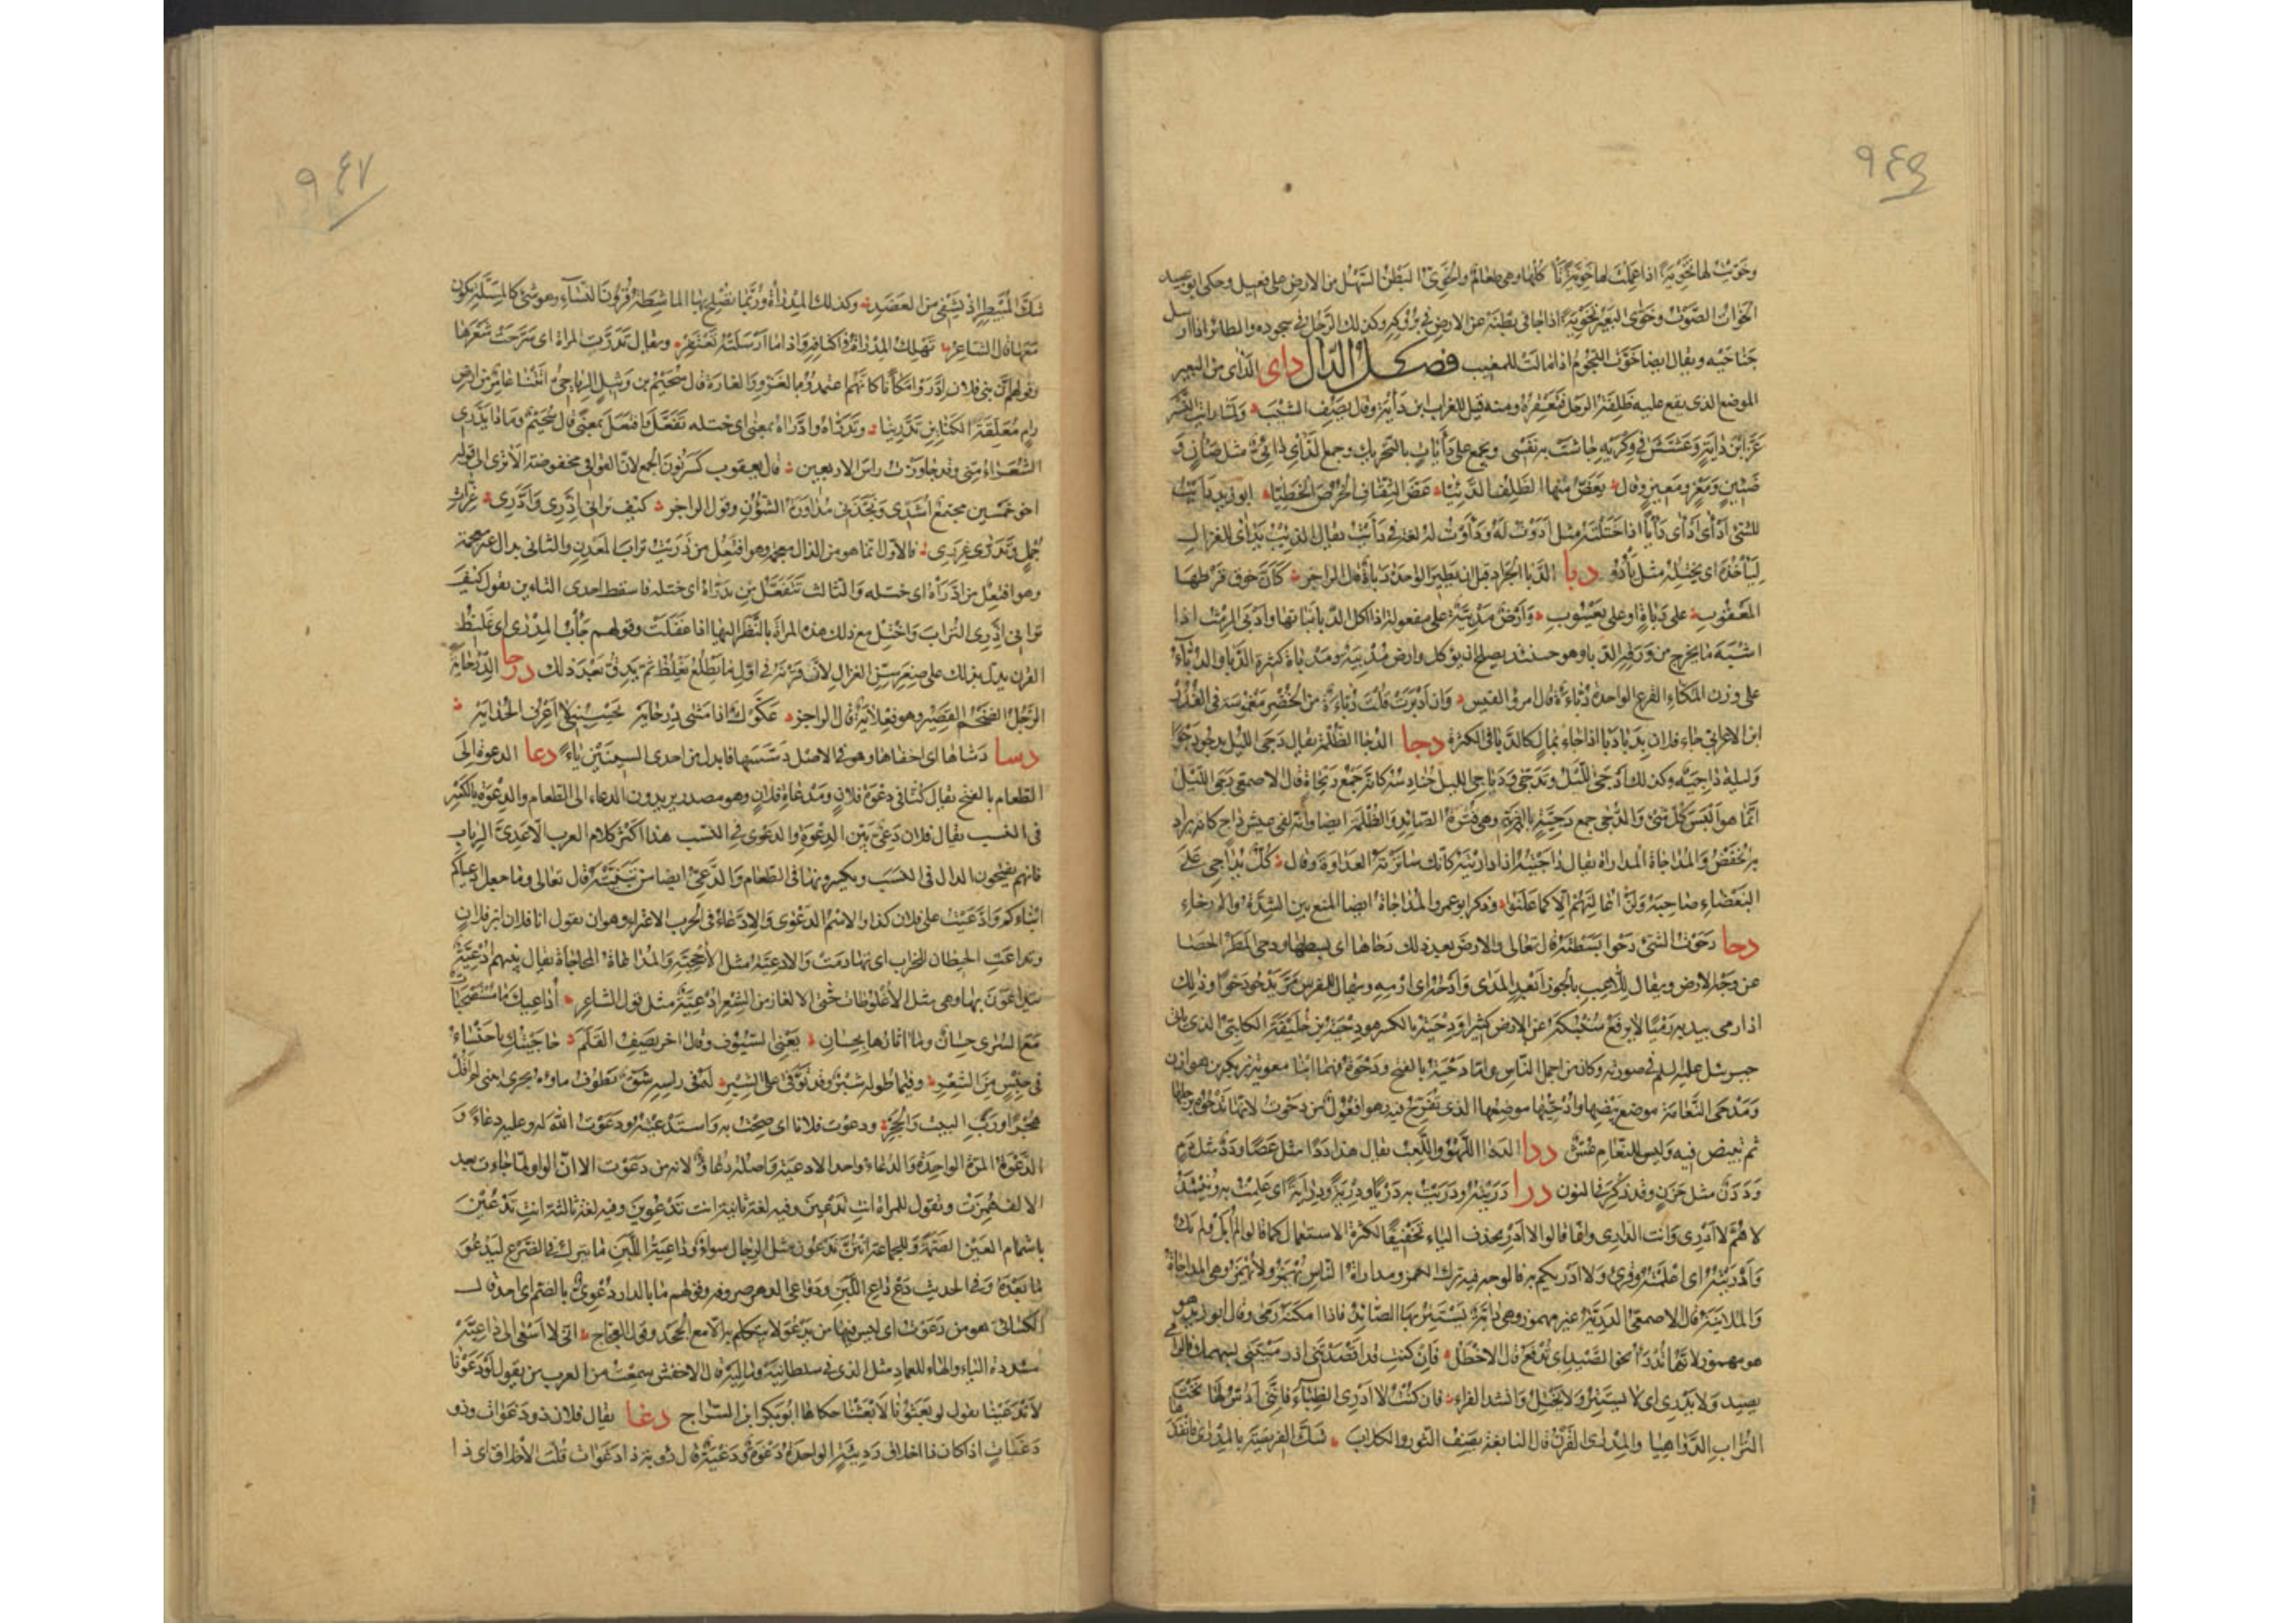 ٩٤٥
وخوّيت لها تخوية اذا عملت لها خوية تاكلها وهى طعام والخوىّ البطن السهل من الارض على فعيل وحكى ابو عبيد
الخوات الصوت وخوّى البعير تخوية اذا جافى بطنه عن الارض فى بروكه وكذلك الرجل فى سجوده والطائر اذا ارسل
جناحيه ويقال ايضا خوّت النجوم اذا مالت للمغيب فصل الدال داى الداى من البعير
الموضع الذى يقع عليه ظلفة الرحل فتعقره ومنه قيل للغراب ابن دأية وقال يصف الشيب ولما رايت النسر
عزّ ابن داية وعشش فى وكريه جاشت به نفسى ويجمع على دأيات بالتحريك وجمع الدأى دئى مثل ضأن و
ضئين ومعز ومعيز وقال يعض منها الظلف الدئيّا عض الثقاف الخرص الخطيّا ابو زيد دأيت
للشئ ادأى له دأيا اذا ختلته مثل ادوت له ودأوت له لغة فى دأيت يقال الذئب يدأى للغزال
ليأخذه اى يختله مثل يأدو دبا الدبا الجراد قبل ان يطير الواحدة دباة قال الراجز كأن خوق قرطها
المعقوب على دباة او على يعسوب وارض مدبيّة على مفعولة اذا اكل الدبا نباتها وادبى الرمث اذا
اشبه ما يخرج من ورقه الدبا وهو حينئذ يصلح ان يؤكل وارض مدبية ومدباة كثيرة الدبا والدبّاء
على وزن المكّاء القرع الواحدة دبّاءة قال امرؤ القيس وان ادبرت قلت دبّاءة من الخضر مغموسة فى الغدر
ابن الاعرابى جاء فلان بدبا دبا اذا جاء بمال كالدبا فى الكثرة دجا الدجا الظلمة يقال دجى الليل يدجو دجوّا
وليلة داجية وكذلك ادجى الليل وتدجّى ودياجى الليل حنادسه كانه جمع ديجاة قال الاصمعى دجى الليل
انما هو البس كل شئ والدجى جمع دجية بالضم وهى قترة الصائد والظلمة ايضا وانه لفى عيش داج كانه يراد
به الخفض والمداجاة المداراة يقال داجيته اذا داريته كانك ساترته العداوة وقال كل يداجى على
البغضاء صاحبه ولن اعالنهم الا كما علنوا وذكر ابو عمرو المداجاة ايضا المنع بين الشدة والارخاء
دحا دحوت الشئ دحوا بسطته قال تعالى والارض بعد ذلك دحاها اى بسطها ودحى المطر الحصا
عن وجه الارض ويقال للاعب بالجوز ابعد المدى وادحه اى ارمه ويقال للفرس مرّ يدحو دحوا وذلك
اذا رمى بيديه رميا لا يرفع سنبكه عن الارض كثيرا ودحية بالكسر هو دحية بن خليفة الكلبى الذى ياتى
جبرئيل عليه السلم فى صورته وكان من اجمل الناس واما دحية بالفتح ودحوة فهما ابنا معوية بن بكر بن هوازن
ومدحى النعامة موضع بيضها وادحيّها موضعها الذى تفرخ فيه وهو افعول من دحوت لانها تدحوه برجلها
ثم تبيض فيه وليس للنعام عش ددا الددا اللهو واللعب يقال هذا ددا مثل عصا ودد مثل دم
وددن مثل حزن وقد ذكرنا فى النون درا دريته ودريت به دريا ودرية ودراية اى علمت به وينشد
لاهمّ لا ادرى وانت الدارى وانما قالوا لا ادر بحذف الياء تخفيفا لكثرة الاستعمال كما قالوا لم ابل ولم يك
وادريته اى اعلمته وقرئ ولا ادريكم به فالوجه فيه ترك الهمز ومداراة الناس تهمز ولا تهمز وهى المداجاة
والملاينة قال الاصمعى الدرية غير مهموز وهى دابة يستتر بها الصائد فاذا امكنه رمى وقال ابو زيد هو
هو مهموز لانها تدرأ نحو الصيد اى تدفع قال الاخطل فان كنت قد اقصدتنى اذ رميتنى بسهمك والرامى
يصيد ولا يدرى اى لا يستتر ولا يختل وانشد الفراء فان كنت لا ادرى الظباء فاننى ادسّ لها تحت
التراب الدواهيا والمدرى القرن قال النابغة يصف الثور والكلاب شكّ الفريصة بالمدرى فانفذها
٩٤٧
شكّ المبيطر اذ يشفى من العضد وكذلك المدراة وربما تصلح بها الماشطة قرون النساء وهو شئ كالمسلة يكون
معها قال الشاعر تهلك المدراة فى اكنافه واذا ما ارسلته تعتفر ويقال تدرّت المراة اى سرّحت شعرها
وقولهم ان بنى فلان ادّروا مكانا كانهم اعتمدوه بالغزو والغارة قال سحيم بن وثيل الرياحى اتتنا عامر من ارض
رام معلّقة الكنائن تدّرينا وتدرّاه وادّراه بمعنى اى ختله تفعّل وافتعل بمعنى قال سحيم وما ذا يدّرى
الشعراء منى وقد جاوزت راس الاربعين قال يعقوب كسر نون الجمع لان القوافى مخفوضة الا ترى الى قوله
اخو خمسين مجتمع اشدّى ونجّذنى مداورة الشؤن وقول الراجز كيف ترانى اذّرى وادّرى غرّات
جمل وتدرّى غررى فالاول انما هو من الذال معجمة وهو افتعل من ذريت تراب المعدن والثانى بدال غير معجمة
وهو افتعل من ادّراه اى ختله والثالث تتفعّل من تدرّاه اى ختله فاسقط احدى التاءين يقول كيف
ترانى اذّرى التراب واختل مع ذلك هذه المراة بالنظر اليها اذا غفلت وقولهم جأب المدرى اى غليظ
القرن يدل بذلك على صغر سن الغزال لان قرنه فى اول ما يطلع يغلظ ثم يدقّ بعد ذلك درحا الدرحاية
الرجل الضخم القصير وهو فعلاية قال الراجز عكوّك اذا مشى درحاية تحسبنى لا اعرف الحداية
دسا دسّاها اى اخفاها وهو فى الاصل دسّسها فابدل من احدى السينين ياء دعا الدعوة الى
الطعام بالفتح يقال كنا فى دعوة فلان ومدعاة فلان وهو مصدر يريدون الدعاء الى الطعام والدعوة بالكسر
فى النسب يقال فلان دعىّ بين الدعوة والدعوى فى النسب هذا اكثر كلام العرب الا عدىّ الرباب
فانهم يفتحون الدال فى النسب ويكسرونها فى الطعام والدعىّ ايضا من تبنّيته قال تعالى وما جعل ادعياءكم
ابناءكم وادّعيت على فلان كذا والاسم الدعوى والادّعاء فى الحرب الاعتزاء وهو ان يقول انا فلان ابن فلان
وتداعت الحيطان للخراب اى تهادمت والادعيّة مثل الاحجيّة والمداعاة المحاجاة يقال بينهم ادعيّة
يتداعون بها وهى مثل الاغلوطات حتى الالغاز من الشعر ادعيّة مثل قول الشاعر اداعيك ما مستحقبات
مع السرى حسان وما آثارها بحسان يعنى السيوف وقال اخر يصف القلم حاجيتك يا خنساء
فى جنس من الشعر وفيما طوله شبر وقد يوفى على الشبر له فى راسه شقّ نطوف ماؤه يجرى ابينى لم اقل
هجرا وربّ البيت والحجر ودعوت فلانا اى صحت به واستدعيته ودعوت الله له وعليه دعاء و
الدعوة المرة الواحدة والدعاء واحد الادعية واصله دعاو لانه من دعوت الا ان الواو لما جاءت بعد
الالف همزت وتقول للمراة انت تدعين وفيه لغة ثانية انت تدعوين وفيه لغة ثالثة انت تدعين
باشمام العين الضمة وللجماعة انتن تدعون مثل الرجال سواء وداعية اللبن ما يترك فى الضرع ليدعو
ما بعده وفى الحديث دع داعى اللبن ودواعى الدهر صروفه وقولهم ما بالدار دعوىّ بالضم اى احد قال
الكسائى هو من دعوت اى ليس فيها من يدعو لا يتكلم به الا مع الجحد وقول العجاج انى لا اسعى الى داعيّه
مشددة الياء والهاء للعماد مثل الذى فى سلطانيه وماليه قال الاخفش سمعت من العرب من يقول لو دعونا
لاندعينا يقول لو بعثونا لانبعثنا حكاها ابو بكر ابن السراج دغا يقال فلان ذو دغوات وذو
دغيات اذا كان ذا اخلاق رديئة الواحدة دغوة ودغية قال رؤبة ذا دغوات قلّب الاخلاق اى ذا